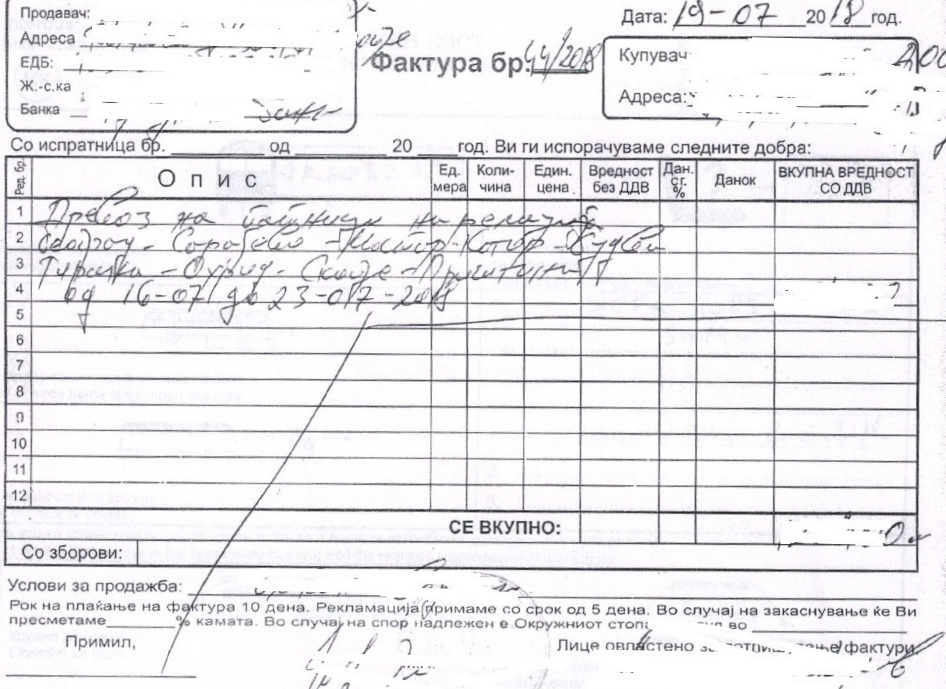 Продавач:
Адреса
ЕДБ:
Ж.-с.ка
Банка
Дата: 19-07 2018 год.
Фактура бр. 44/2018
Купувач
Адреса:
Со испратница бр. од 20 год. Ви ги испорачуваме следните добра:
Ред. бр. Опис Ед. мера Коли-чина Един. цена Вредност без ДДВ Дан. ст. % Данок ВКУПНА ВРЕДНОСТ СО ДДВ
1 Превоз на патници на релација
2 Сараево - Мостар - Котор - Будва
3 Тирана - Охрид - Скопје - Приштина
4 од 16-07 до 23-07-2018
5
6
7
8
9
10
11
12
СЕ ВКУПНО:
Со зборови:
Услови за продажба:
Рок на плаќање на фактура 10 дена. Рекламација примаме со срок од 5 дена. Во случај на закаснување ќе Ви
пресметаме % камата. Во случај на спор надлежен е Окружниот во
Примил,
Лице овластено за фактури